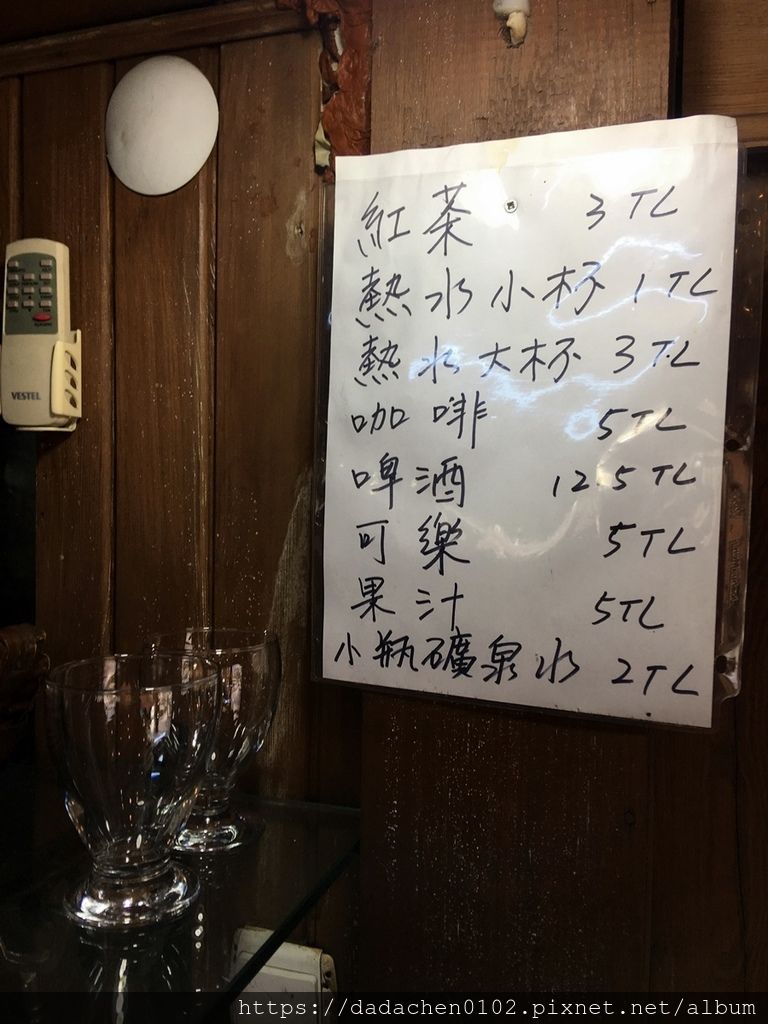 紅茶 3 TL
熱水小杯 1 TL
熱水大杯 3 TL
咖啡 5 TL
啤酒 12.5 TL
可樂 5TL
果汁 5TL
小瓶礦泉水 2TL
VESTEL
https://dadachen0102.pixnet.net/album